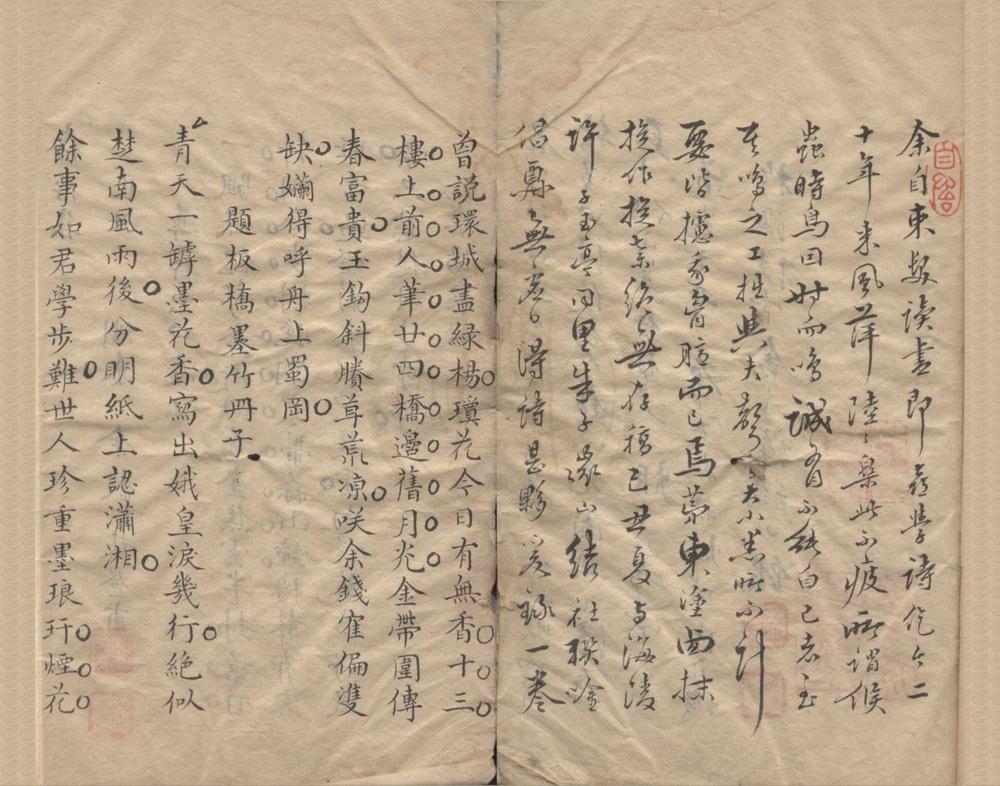 余自束髮讀書即喜學詩迄今二
十年来風萍陸陸樂此不疲所謂候
蟲時鳥因時而鳴誠有不能自已者至
其鳴之工拙與夫聲之大小悉所不計
要皆攄我胸臆而已焉第東塗西抹
旋作旋棄紛無存稿己丑夏与海陵
許子玉亭同里朱子緣山結社聯吟
倡霽無虛日得詩甚夥爰錄一卷
曾說環城盡綠楊瓊花今日有無香十三
樓上前人華廿四橋邊舊月光金帶圍傳
春富貴玉鈎斜賸草荒涼咲余錢隺偏雙
缺嬾得呼舟上蜀岡
題板橋墨竹冊子
青天一罅墨花香寫出娥皇淚幾行絕似
楚南風雨後份明紙上認瀟湘
餘事如君學步難世人珍重墨琅玕煙花